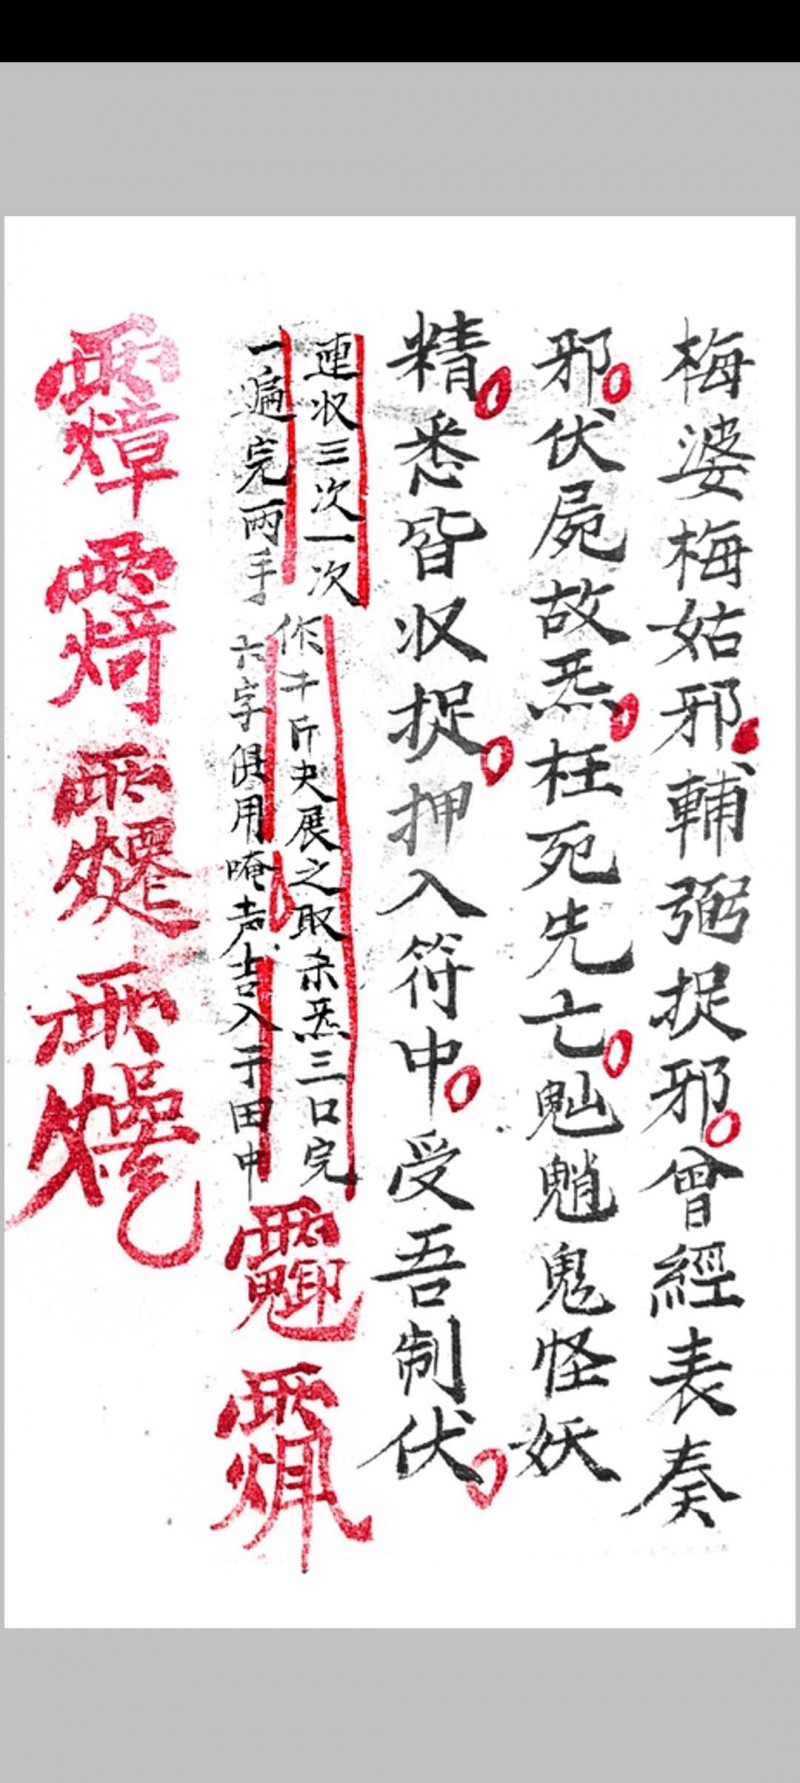 梅婆梅姑邪輔弼捉邪曾經表奏
邪伏屍故炁枉死先亡魈鬼怪妖
精悉皆収捉押入符中受吾制伏
連収三次一次
作千斤夬展之取杀炁三口完
一遍完两手
六字俱用唵声吉入于田中